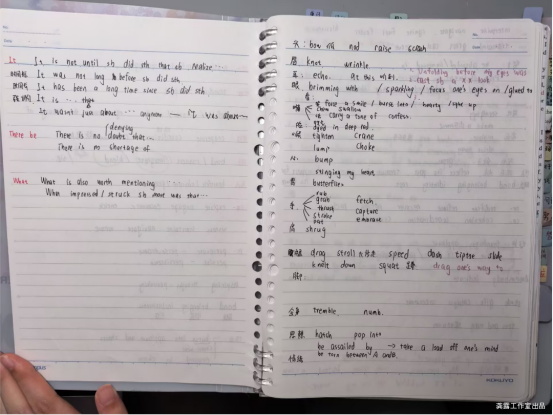 It It is not until sb did sth that sb realize
It was not long before sb did sth
It has been a long time since sb did sth
It is ... that
It wasn't just about ... anymore — It was about ~
There be There is no denying that...
doubt
There is no shortage of
What What is also worth mentioning
What impressed / struck sb more was that...
头: bow nod raise scratch
眉 knot wrinkle
echo.
unfolding before my eyes was
cast sb a xx look
眼 brimming with / sparking / focus one's eyes on / glued to
force a smile / burst into / light up
嘴 chew swallow
carry a tone of
dyed in deep red
tighten crane
lump choke
心 bump
stinging my heart
胃 butterflies
rub
手 grab fetch
thrust capture
stroke embrace
pat
肩 shrug
drag stroll speed dash tiptoe slide
knelt down squat drag one's way to
脚
全身 tremble. numb.
思想 pop into
be assailed by → take a load off one's mind
情绪 be torn between A and B.
KOKUYO
龚露工作室出品